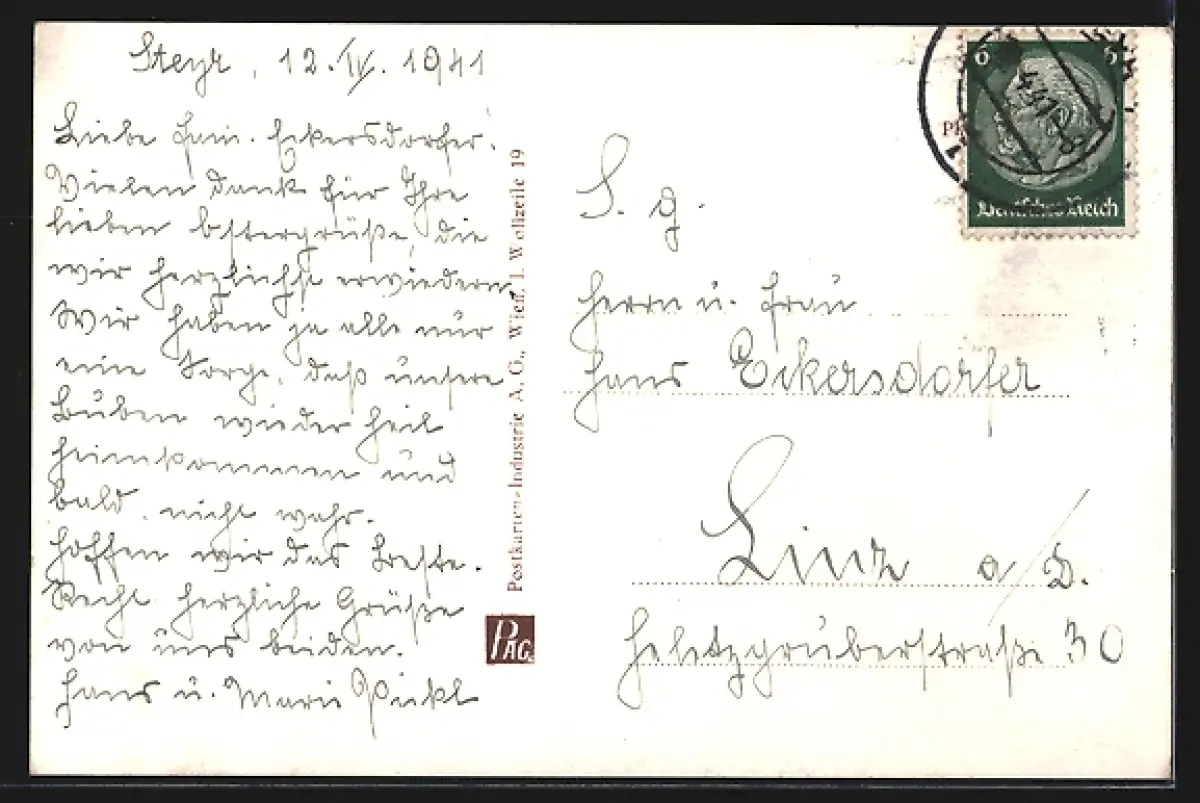 Steyr, 12. IV. 1941
Liebe Fam. Eckersdorfer!
Vielen Dank für Ihre
lieben Ostergrüße, die
wir herzlichst erwiedern.
Wir haben ja alle nur
eine Sorge, daß unsere
Buben wieder heil
heimkommen und
bald, nicht wahr.
Hoffen wir das Beste.
Recht herzliche Grüße
von uns beiden.
Hans u. Marie
Postkarten-Industrie A. G., Wien, I. Wollzeile 19
PAG.
6 6
Deutsches Reich
S. g.
Herrn u. Frau
Hans Eckersdorfer
Linz a/D.
30